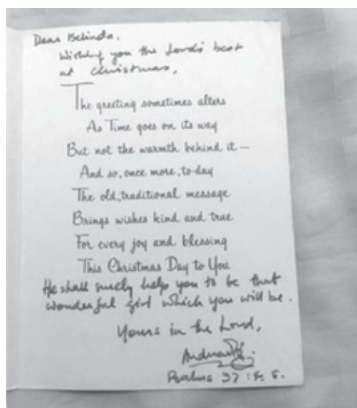 Dear Belinda.
Wishing you the Lord's best
at Christmas,
The greeting sometimes alters
As Time goes on its way
But not the warmth behind it—
And so, once more, to-day
The old, traditional message
Brings wishes kind and true
For every joy and blessing
This Christmas Day to You
He shall surely help you to be that
wonderful girl which you will be.
Yours in the Lord,
Psalms 37: